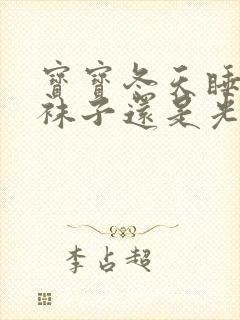 寶寶冬天睡
襪子還是光
李占超